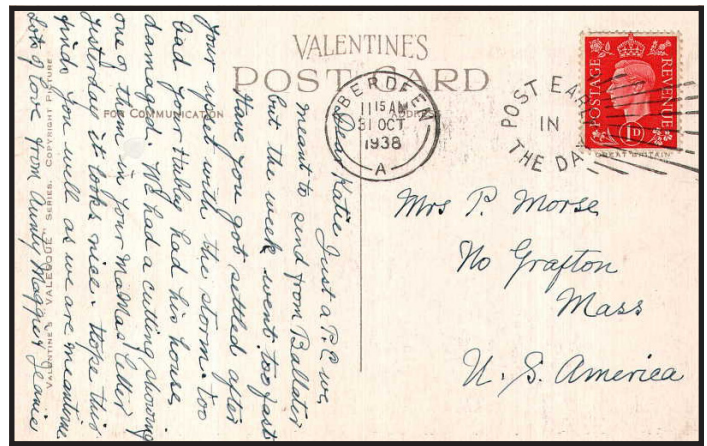 VALENTINE'S
POST CARD
FOR COMMUNICATION
ADDRESS
ABERDEEN
11 15 AM
31 OCT
1938
A
POST EARLY
IN
THE DAY
POSTAGE
REVENUE
1D
GREAT BRITAIN
Dear Katie Just a P.C we
meant to send from Ballater
but the week went too fast
Have you got settled after
your upset with the storm. too
bad your Hubby had his house
damaged. We had a cutting showing
one of them in your MaMas letter
yesterday it looks nice. Hope this
finds you well as we are meantime
Lots of love from Aunty Maggie & Jeanie
Mrs P. Morse
No Grafton
Mass
U. S. America
VALENTINE'S "VALESQUE" SERIES. COPYRIGHT PICTURE.